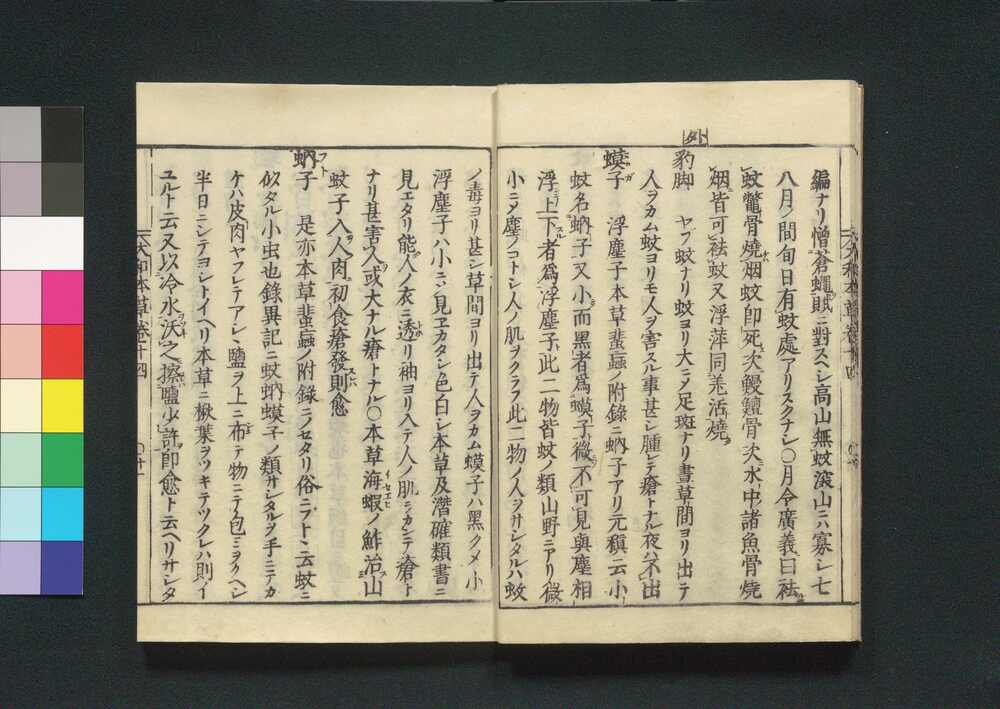 編ナリ憎蒼蠅賦ニ對スヘシ高山無蚊深山ニハ寡シ七
八月ノ間旬日有蚊處アリスクナシ〇月令廣義曰袪
蚊鼈骨燒烟蚊卽死次鰻鱺骨次水中諸魚骨燒
烟皆可袪蚊又浮萍同羌活燒
外
豹脚 ヤブ蚊ナリ蚊ヨリ大ニメ足斑ナリ晝草間ヨリ出テ
人ヲカム蚊ヨリモ人ヲ害スル事甚シ腫レテ瘡トナル夜ハ不出
蟆子 浮塵子本草蜚蝱ノ附錄ニ蚋子アリ元稹云小
蚊名蚋子又小而黑者爲蟆子微不可見與塵相
浮上下者爲浮塵子此二物皆蚊ノ類山野ニアリ微
小ニメ塵ノコトシ人ノ肌ヲクラフ此二物ノ人ヲサシタルハ蚊
ノ毒ヨリ甚シ草間ヨリ出テ人ヲカム蟆子ハ黑クメ小
浮塵子ハ小ニシ見エカタシ色白シ本草及潛確類書ニ
見エタリ能人ノ衣ニ透リ袖ヨリ入テ人ノ肌ニカンテ瘡ト
ナリ甚害人或大ナル瘡トナル〇本草海蝦ノ鮓治山
蚊子入人肉初食瘡發則愈
蚋子 是亦本草蜚蝱ノ附錄ニノセタリ俗ニブトヽ云蚊ニ
似タル小虫也錄異記ニ蚊蚋蟆子ノ類サシタルヲ手ニテカ
ケハ皮肉ヤフレテアシヽ鹽ヲ上ニ布テ物ニテ包ミヲクヘシ
半日ニシテヨシトイヘリ本草ニ楸葉ヲツキテツクレハ則イ
ユルト云又以冷水沃之擦鹽少許卽愈ト云ヘリサシタ
大和本草卷十四